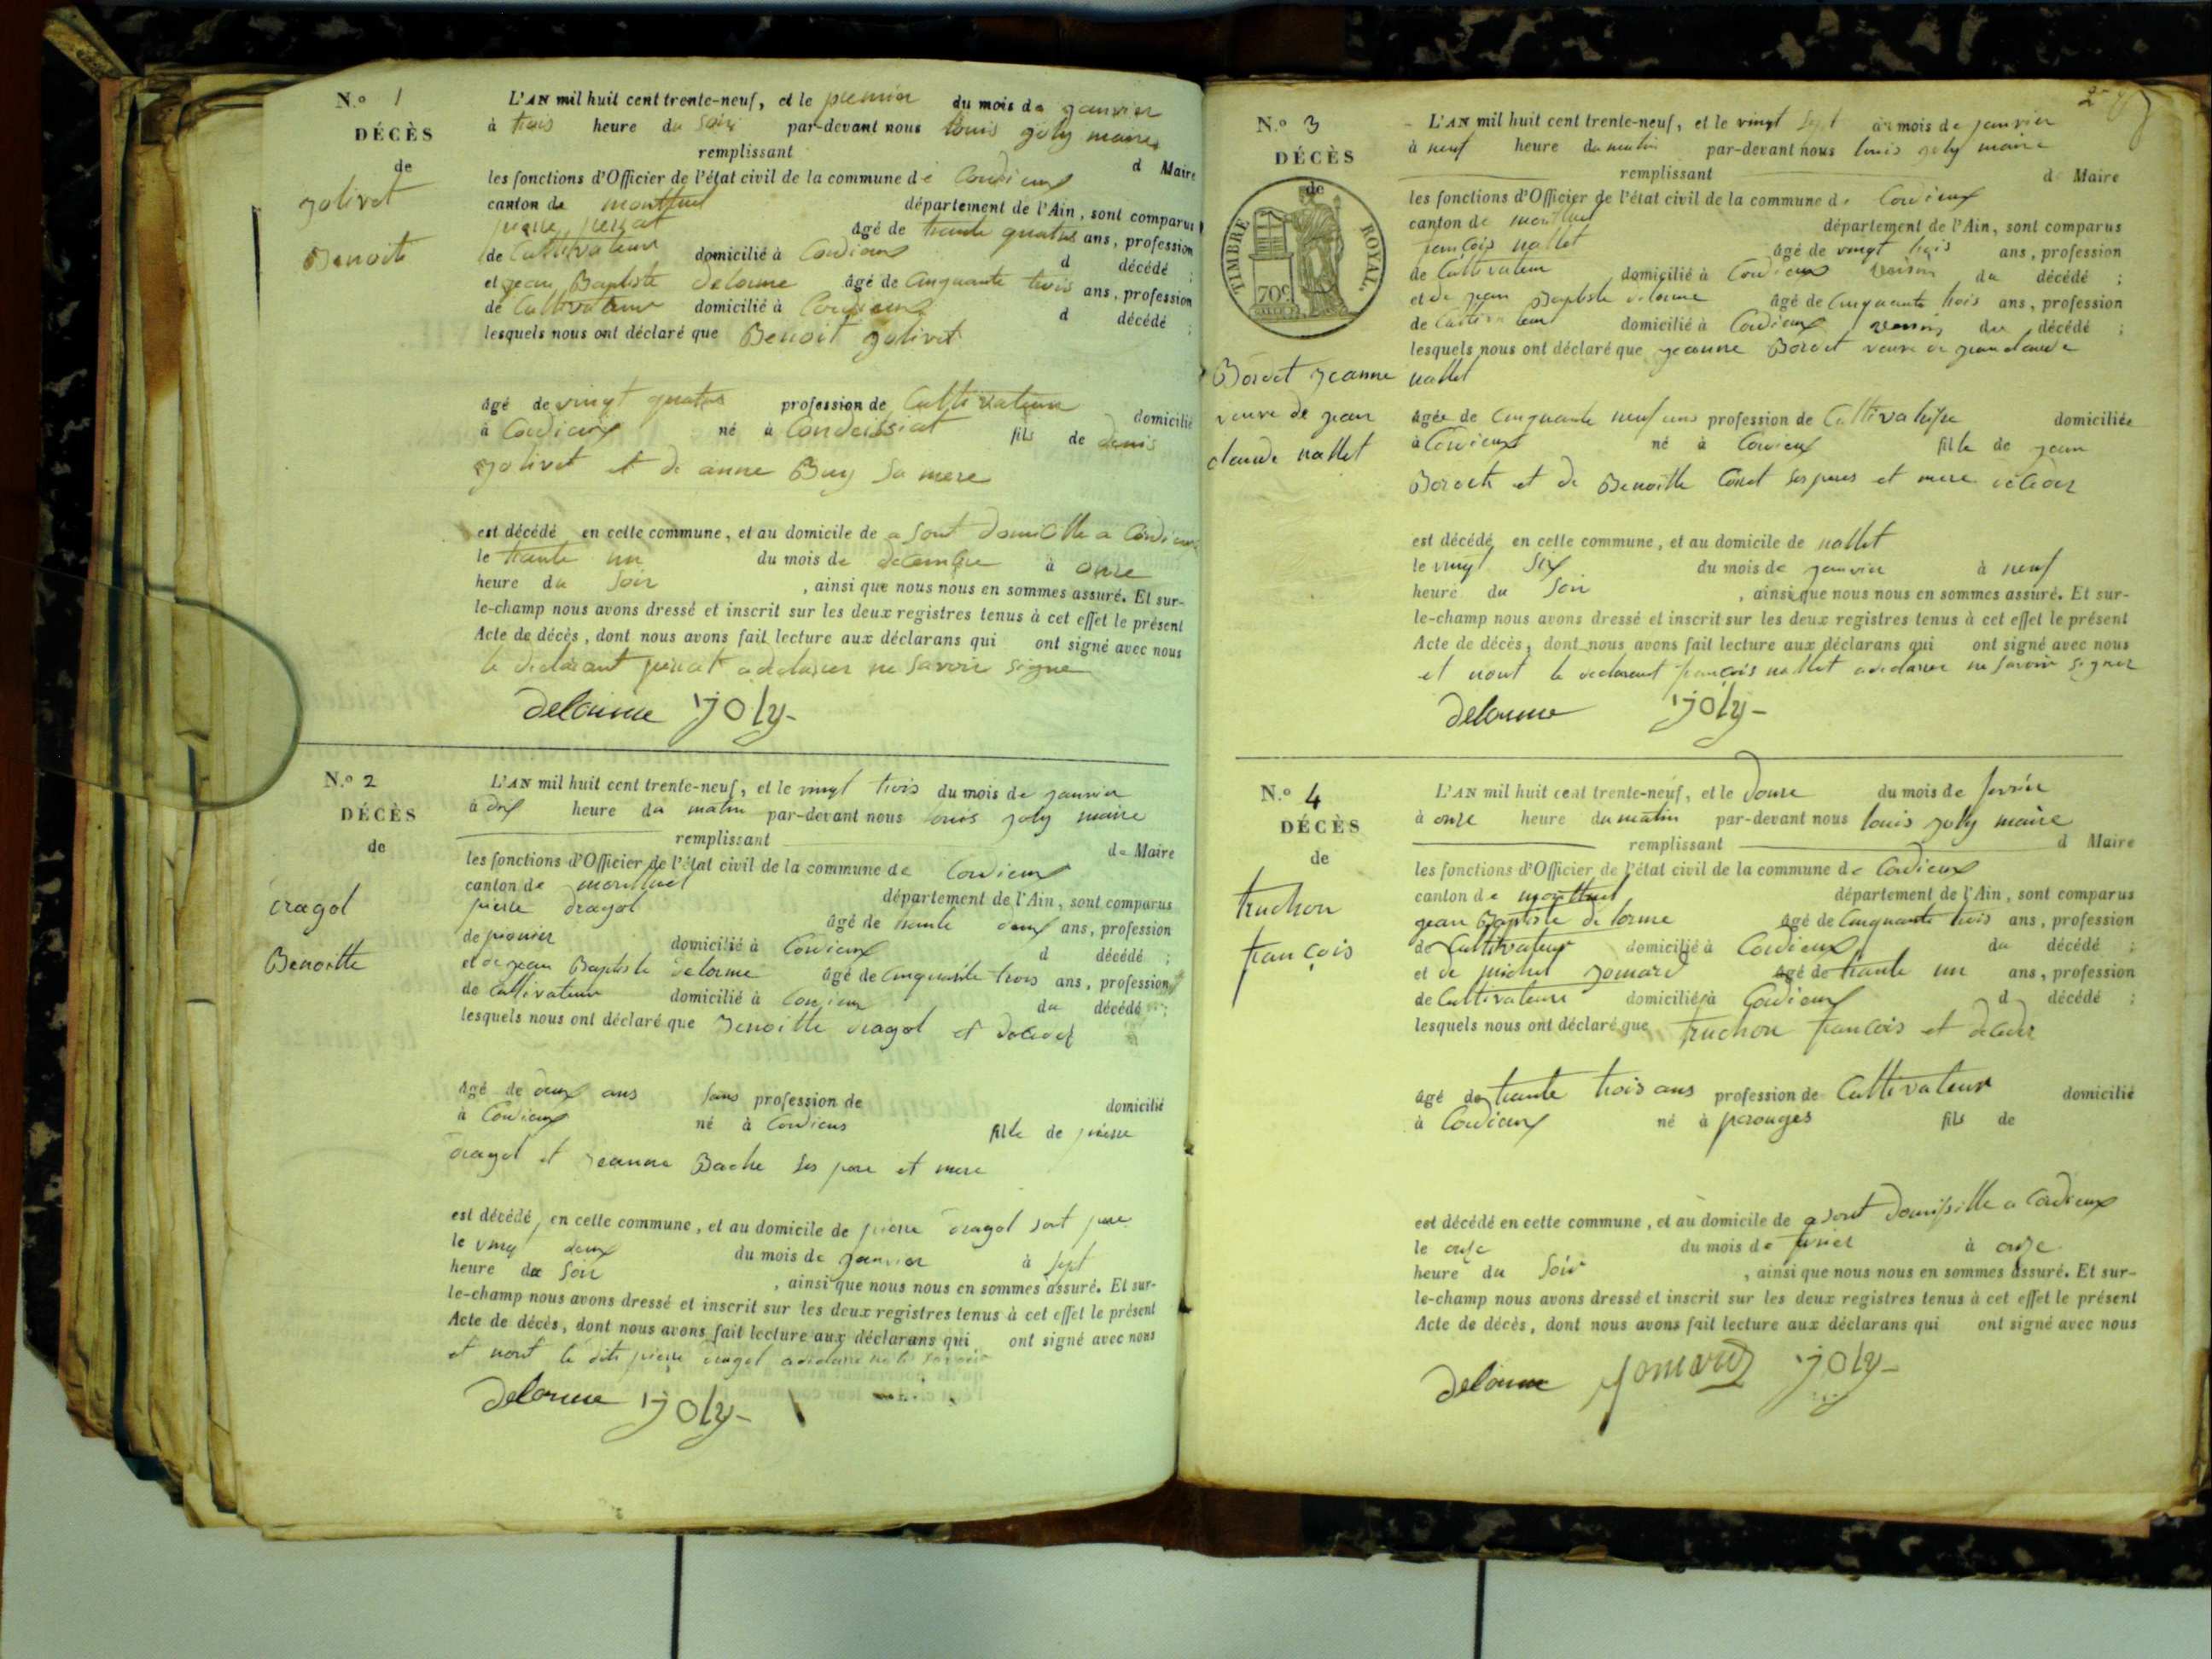 N.o 1
DÉCÈS
de
jolivet
Benoite
L'AN mil huit cent trente-neuf, et le premier du mois de janvier
à trois heure du soir par-devant nous louis joly maire
remplissant d Maire
les fonctions d'Officier de l'état civil de la commune de Cordieux
canton de montluel département de l'Ain, sont comparus
pierre perrat âgé de trante quatre ans, profession
de Cultivateur domicilié à Cordieux d décédé ;
et jean Baptiste delorme âgé de Cinquante trois ans, profession
de Cultivateur domicilié à Cordieux d décédé ;
lesquels nous ont déclaré que Benoit jolivet
âgé de vingt quatre profession de Cultivateur domicilié
à Cordieux né à Condeissiat fils de denis
jolivet et de anne Buy sa mere
est décédé en cette commune, et au domicile de a sont domicille a Cordieux
le trante un du mois de decembre à onze
heure du soir , ainsi que nous nous en sommes assuré. Et sur-
le-champ nous avons dressé et inscrit sur les deux registres tenus à cet effet le présent
Acte de décès, dont nous avons fait lecture aux déclarans qui ont signé avec nous
le declarant perrat a declarer ne savoir signe
delorme joly
N.o 2
DÉCÈS
de
dragol
Benoitte
L'AN mil huit cent trente-neuf, et le vingt trois du mois de janvier
à dix heure du matin par-devant nous louis joly maire
remplissant de Maire
les fonctions d'Officier de l'état civil de la commune de Cordieux
canton de montluel département de l'Ain, sont comparus
pierre dragol âgé de trante deux ans, profession
de pionier domicilié à Cordieux d décédé ;
et de jean Baptiste delorme âgé de Cinquante trois ans, profession
de Cultivateur domicilié à Cordieux du décédé ;
lesquels nous ont déclaré que Benoitte dragol et decedez
âgé de deux ans sans profession de domicilié
à Cordieux né à Cordieux fille de pierre
dragol et jeanne Bache ses pere et mere
est décédé en cette commune, et au domicile de pierre dragol sont pere
le vingt deux du mois de janvier à sept
heure du soir , ainsi que nous nous en sommes assuré. Et sur-
le-champ nous avons dressé et inscrit sur les deux registres tenus à cet effet le présent
Acte de décès, dont nous avons fait lecture aux déclarans qui ont signé avec nous
et nont le dits pierre dragol
delorme joly
N.o 3
DÉCÈS
de
TIMBRE ROYAL
70c
Bordet jeanne
veuve de jean
claude nallet
L'AN mil huit cent trente-neuf, et le vingt sept du mois de janvier
à neuf heure du matin par-devant nous louis joly maire
remplissant de Maire
les fonctions d'Officier de l'état civil de la commune de Cordieux
canton de montluel département de l'Ain, sont comparus
françois nallet âgé de vingt trois ans, profession
de Cultivateur domicilié à Cordieux voisin du décédé ;
et de jean Baptiste delorme âgé de Cinquante trois ans, profession
de Cultivateur domicilié à Cordieux voisin du décédé ;
lesquels nous ont déclaré que jeanne Bordet veuve de jean claude
nallet
âgée de Cinquante neuf ans profession de Cultivatrise domiciliée
à Cordieux né à Cordieux fille de jean
et de Benoitte ses peres et mere
est décédé en cette commune, et au domicile de nallet
le vingt six du mois de janvier à neuf
heure du soir , ainsi que nous nous en sommes assuré. Et sur-
le-champ nous avons dressé et inscrit sur les deux registres tenus à cet effet le présent
Acte de décès, dont nous avons fait lecture aux déclarans qui ont signé avec nous
et nont le declarent françois nallet a declarer ne savoir signer
delorme joly
N.o 4
DÉCÈS
de
truchon
françois
L'AN mil huit cent trente-neuf, et le douze du mois de fevrier
à onze heure du matin par-devant nous louis jolly maire
remplissant d Maire
les fonctions d'Officier de l'état civil de la commune de Cordieux
canton de montluel département de l'Ain, sont comparus
jean Baptiste de lorme âgé de Cinquante trois ans, profession
de Cultivateur domicilié à Cordieux du décédé ;
et de michel jomard âgé de trante un ans, profession
de Cultivateur domicilié à Cordieux d décédé ;
lesquels nous ont déclaré que truchon francois et deceder
âgé de trante trois ans profession de Cultivateur domicilié
à Cordieux né à perouges fils de
est décédé en cette commune, et au domicile de a sont domisille a Cordieux
le onze du mois de fevrier à onze
heure du soir , ainsi que nous nous en sommes assuré. Et sur-
le-champ nous avons dressé et inscrit sur les deux registres tenus à cet effet le présent
Acte de décès, dont nous avons fait lecture aux déclarans qui ont signé avec nous
delorme jomard joly